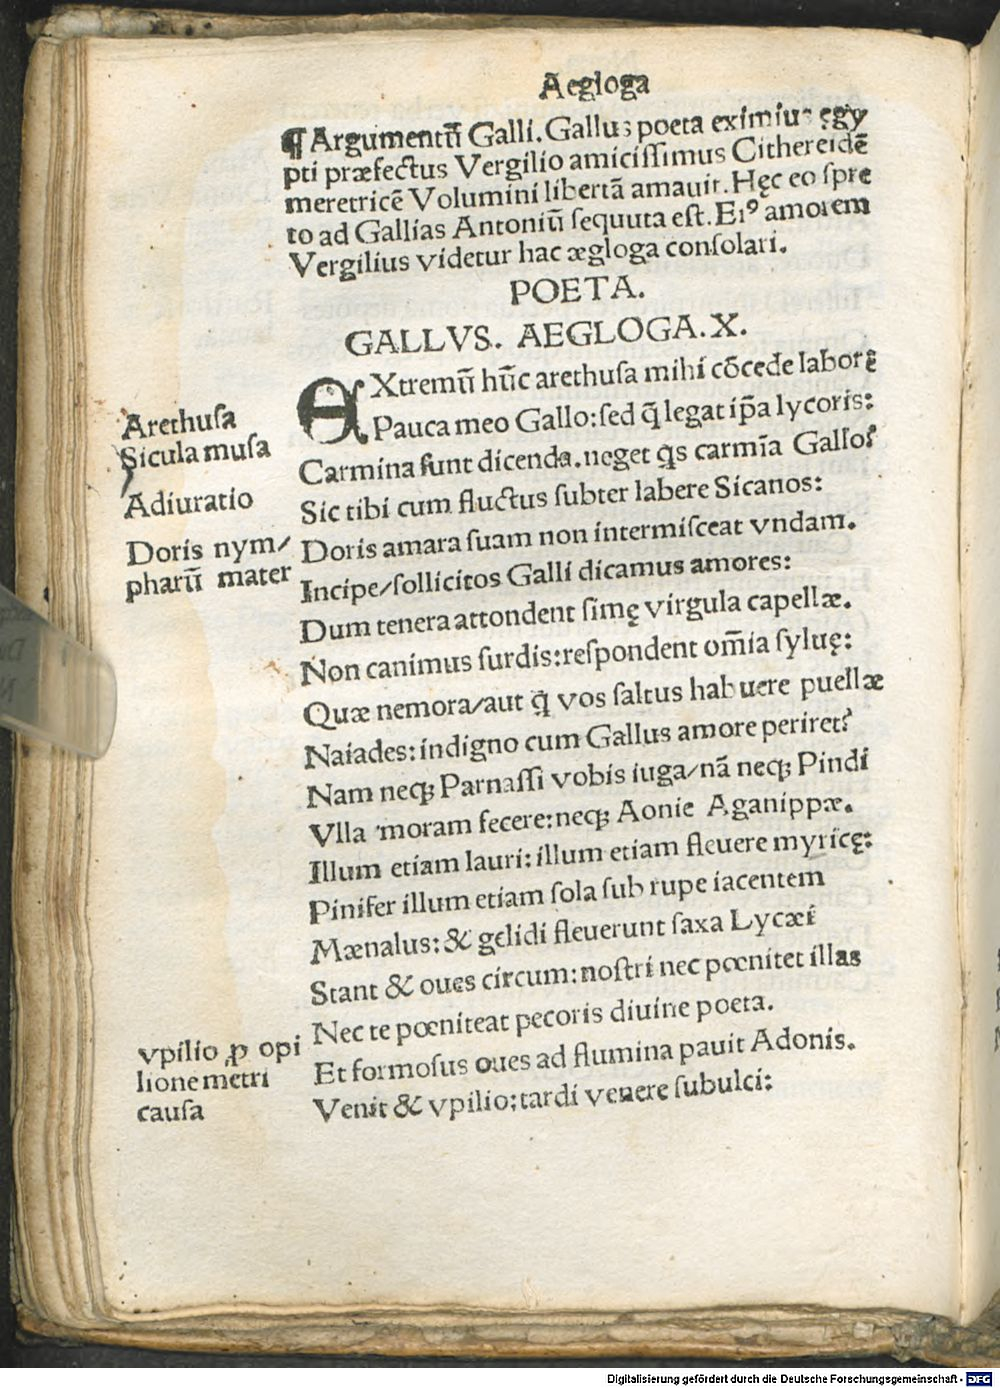 Aegloga
¶ Argumentū Galli. Gallus poeta eximius ęgy
pti præfectus Vergilio amicissimus Cithereidē
meretricē Volumini libertā amauit. Hęc eo spre
to ad Gallias Antoniū sequuta est. Eiꝰ amorem
Vergilius videtur hac ægloga consolari.
POETA.
GALLVS. AEGLOGA. X.
EXtremū hūc arethusa mihi cōcede laborē
Pauca meo Gallo: sed q̄ legat ip̄a lycoris:
Carmina sunt dicenda. neget q̄s carmīa Gallo?
Sic tibi cum fluctus subter labere Sicanos:
Doris amara suam non intermisceat vndam.
Incipe/sollicitos Galli dicamus amores:
Dum tenera attondent simę virgula capellæ.
Non canimus surdis: respondent om̄ia syluę:
Quæ nemora/aut q̄ vos saltus habuere puellæ
Naiades: indigno cum Gallus amore periret?
Nam neqꝫ Parnassi vobis iuga/nā neqꝫ Pindi
Vlla moram fecere: neqꝫ Aonie Aganippæ.
Illum etiam lauri: illum etiam fleuere myricę:
Pinifer illum etiam sola sub rupe iacentem
Mænalus: & gelidi fleuerunt saxa Lycæi
Stant & oues circum: nostri nec pœnitet illas
Nec te pœniteat pecoris diuine poeta.
Et formosus oues ad flumina pauit Adonis.
Venit & vpilio: tardi venere subulci:
Arethusa
Sicula musa
Adiuratio
Doris nym/
pharū mater
vpilio ꝓ opi
lione metri
causa
Digitalisierung gefördert durch die Deutsche Forschungsgemeinschaft - DFG